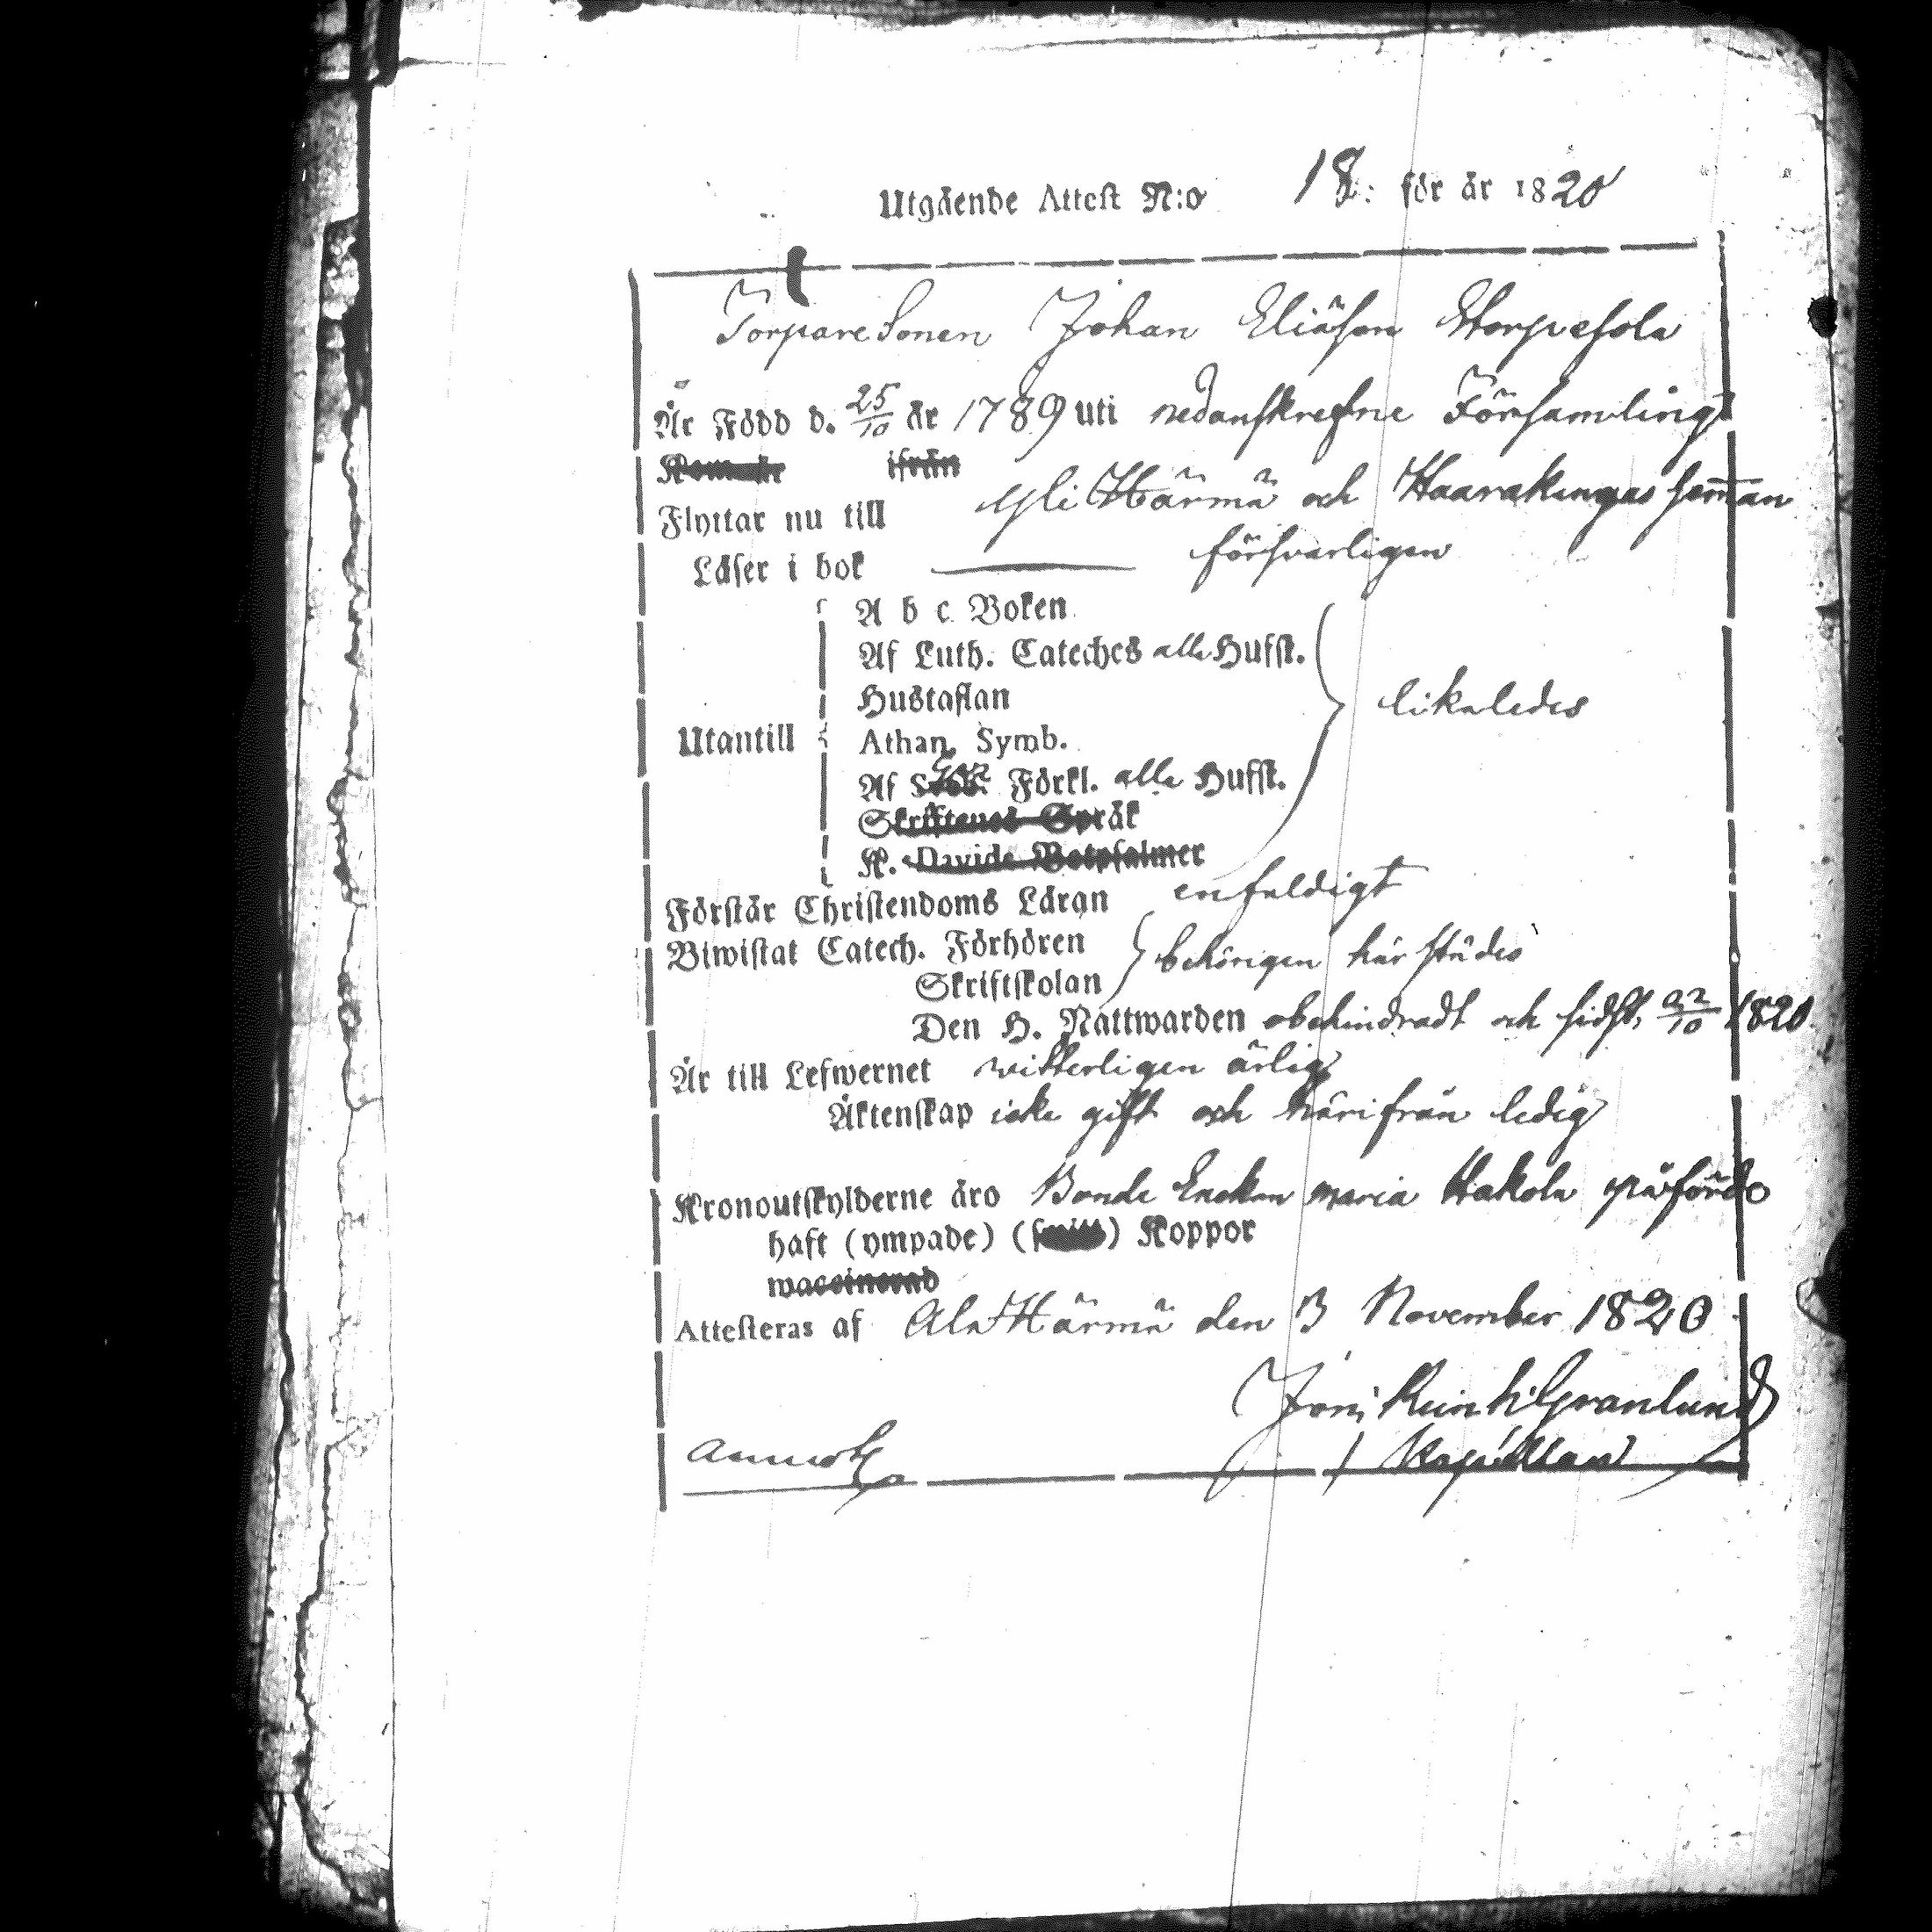 Utgående Attest N:o 18: för år 1820
Torpare Sonen Johan Eliäson Storpesola
Är Född d. 25/10 år 1789 uti nedanskrefne Församling
Kom är ifrån
Flyttar nu till Yli Härmä och Haarakangas hemman
Läser i bok försvarligen
A b c Boken
Af Luth. Cateches alla Hufst.
Hustaflan
likaledes
Utantill
Athan. Symb.
Af Förkl. alla Hufst.
Skriftenes Språk
K. Davids Botpsalmer
Förstår Christendoms Läran enfaldigt
Biwistat Catech. Förhören
Skriftskolan
behörigen här städes
Den H. Nattwarden obehindradt och sidst, 22/10 1820
Är till Lefwernet witterligen ärlig
Äktenskap icke gift och härifrån ledig
Kronoutskylderne äro Bonde Enckan Maria Hakola påförde
haft (ympade) () Koppor
waccinerad
Attesteras af Ala Härmä den 13 November 1820
Granlund
Kapellan